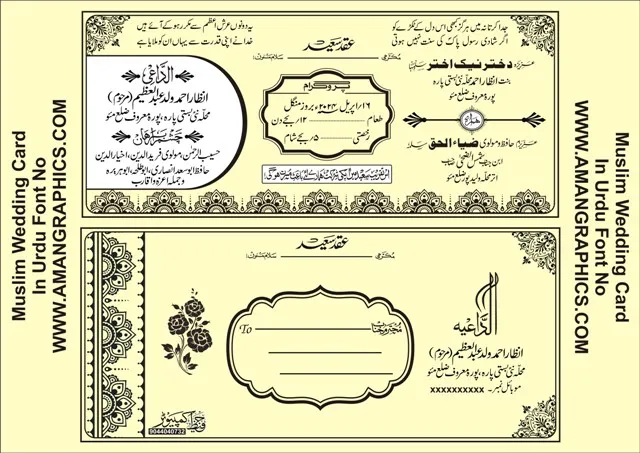 Muslim Wedding Card
In Urdu Font No
WWW.AMANGRAPHICS.COM
جدا کرتا نہ میں ہرگز کبھی اس دل کے ٹکڑے کو
اگر شادی رسول پاک کی سنت نہیں ہوتی
یہ دونوں عرش اعظم سے مکرر ہو کے آئے ہیں
خدا نے اپنی قدرت سے یہاں ان کو ملایا ہے
عقد سعید
مکرمی سلام مسنون!
دختر نیک اختر
بنت انظار احمد محلہ نئی بستی پارہ
پورہ معروف ضلع مئو
ہمراہ
حافظ و مولوی ضیاء الحق
ابن جناب شمس الضحیٰ صاحب
محلہ ولید پور ضلع مئو
پروگرام
۱۶/اپریل ۲۰۲۴ء بروز منگل
طعام ۱۲ بجے دن
رخصتی ۵ بجے شام
الداعی
انظار احمد ولد عبدالعظیم (مرحوم)
محلہ نئی بستی پارہ، پورہ معروف ضلع مئو
چشم براہان
حسیب الرحمٰن، مولوی فرید الدین، اخبار الدین
حافظ ابو سعد انصاری، ابوطلحہ، ابوہریرہ
و جملہ اعزہ و اقارب
عقد سعید
مکرمی سلام مسنون!
To محترم جناب
الداعیہ
انظار احمد ولد عبدالعظیم (مرحوم)
محلہ نئی بستی پارہ، پورہ معروف ضلع مئو
موبائل نمبر۔ xxxxxxxxxx
کمپیوٹر
9044040732
Muslim Wedding Card
In Urdu Font No
WWW.AMANGRAPHICS.COM